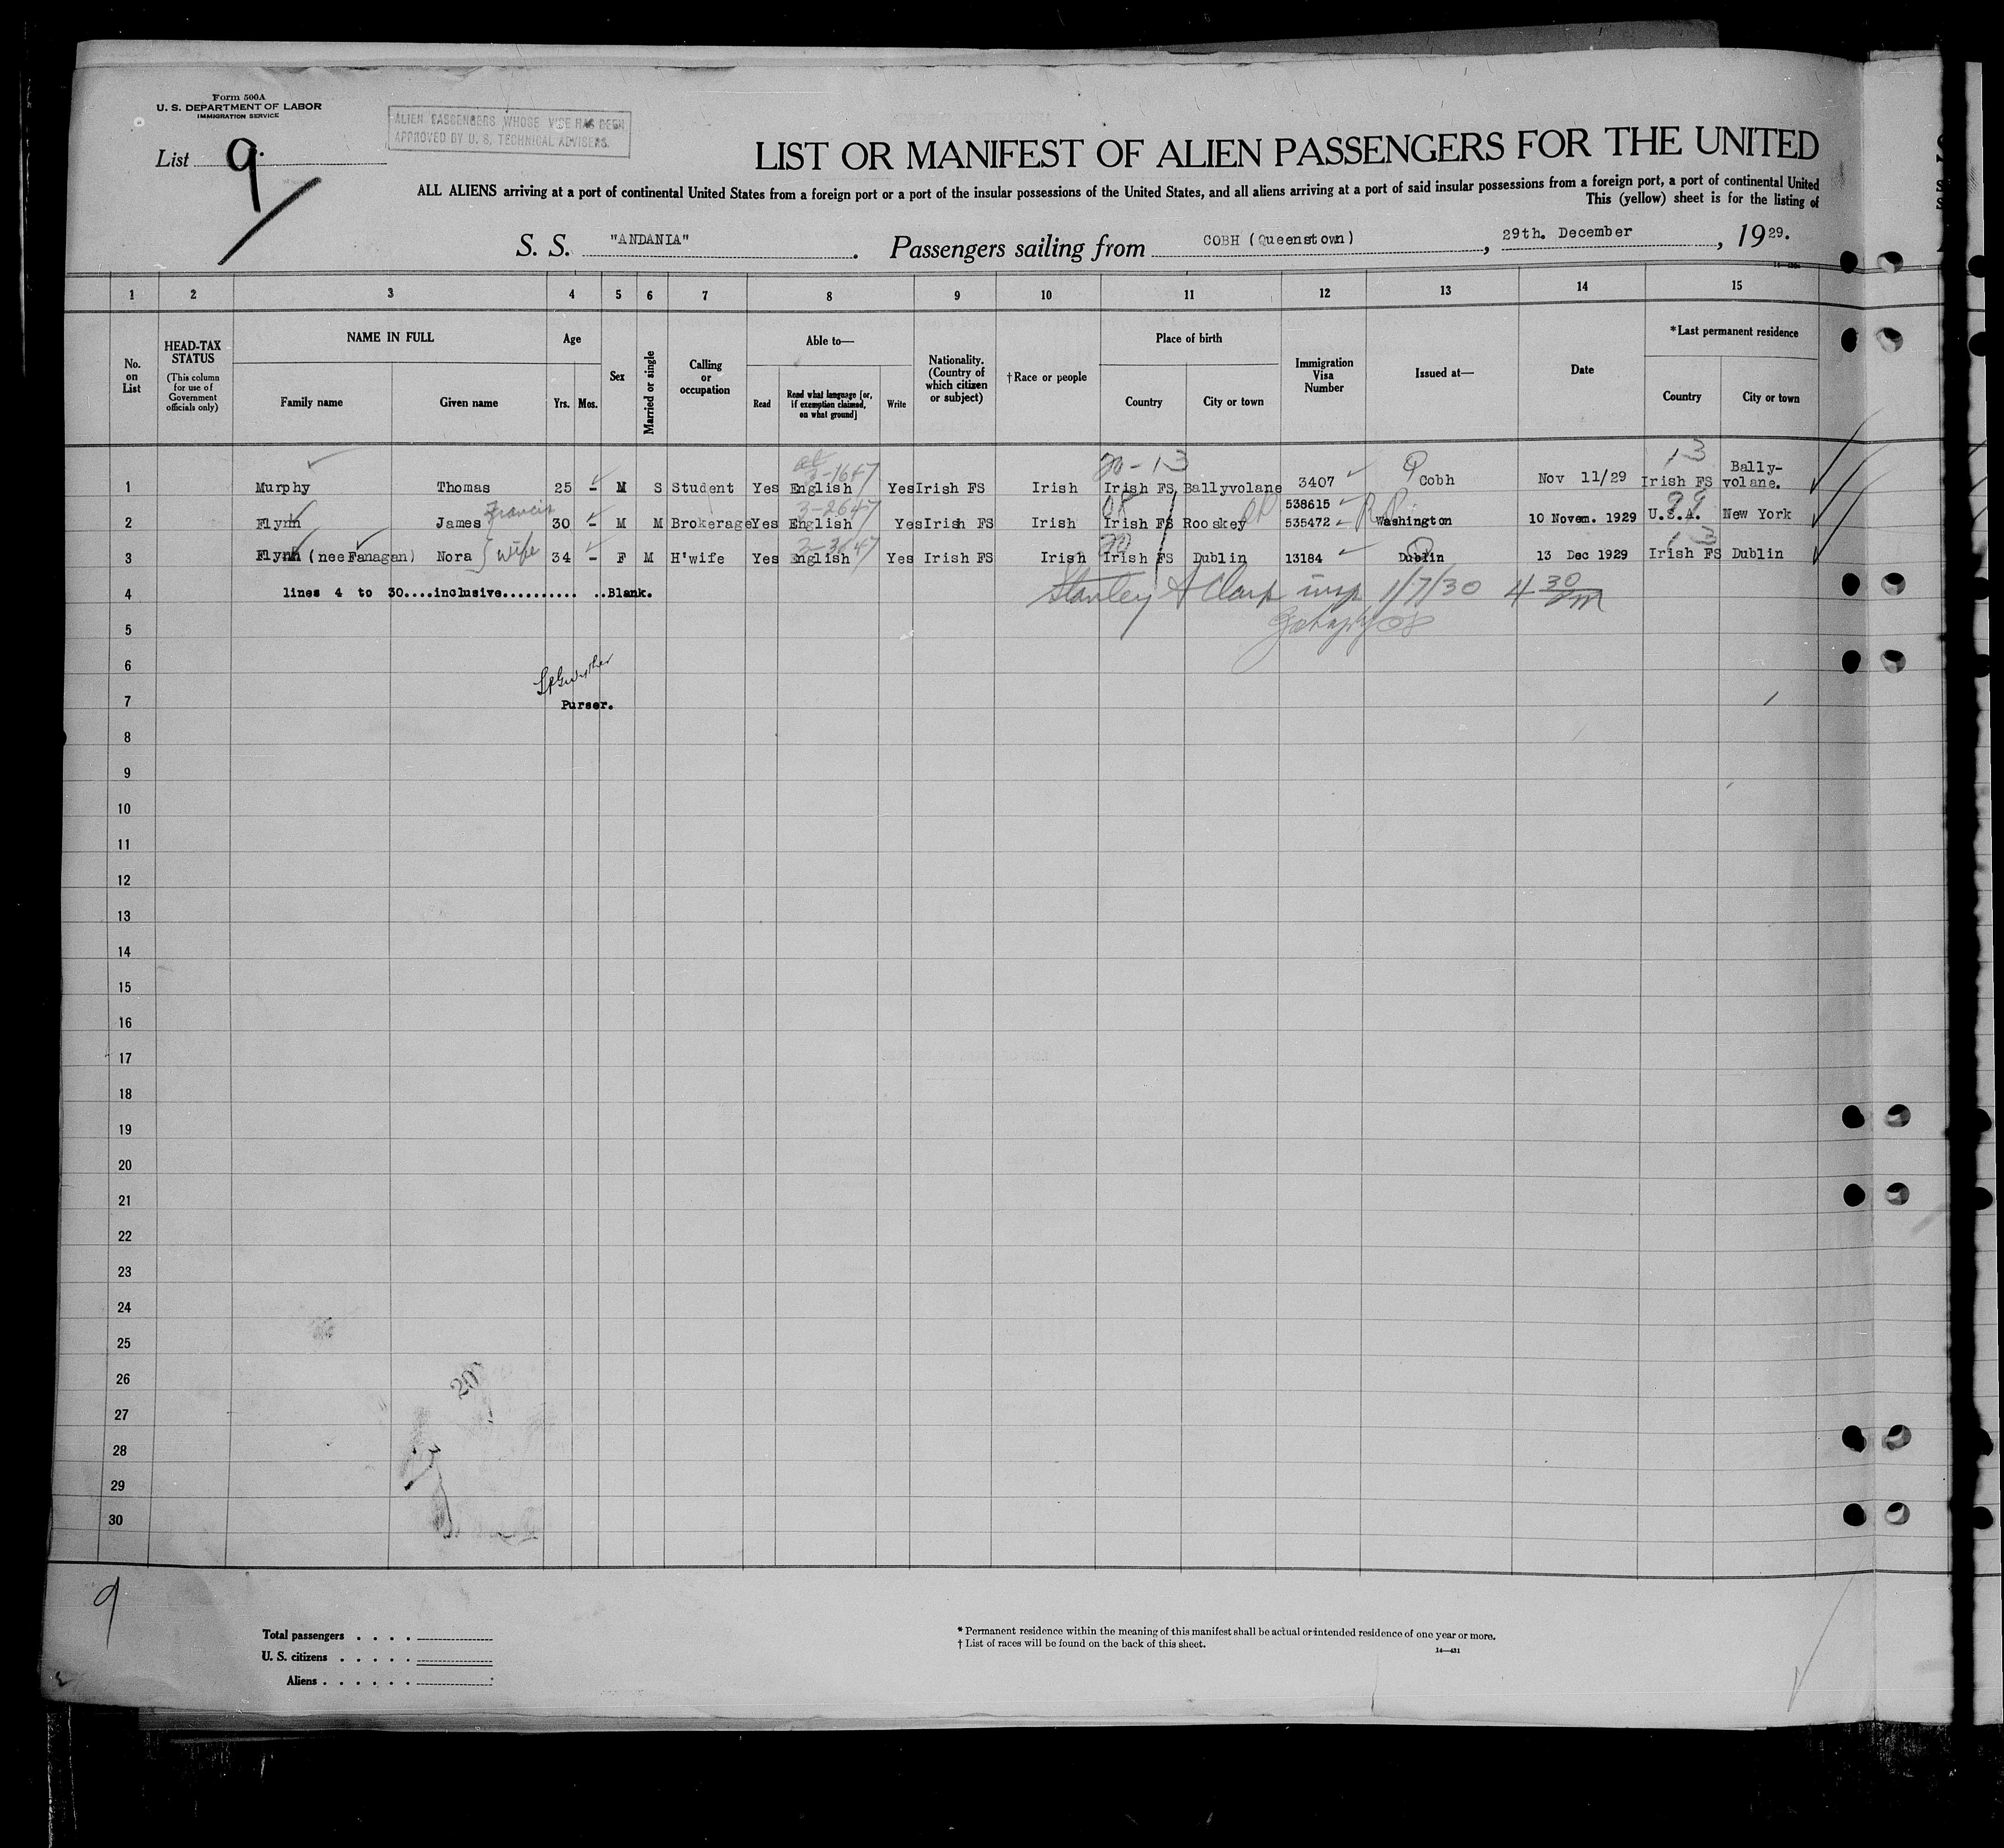 Form 500A
U. S. DEPARTMENT OF LABOR
IMMIGRATION SERVICE
ALIEN PASSENGERS WHOSE VISE HAS BEEN
APPROVED BY U. S. TECHNICAL ADVISERS.
List 9.
LIST OR MANIFEST OF ALIEN PASSENGERS FOR THE UNITED
ALL ALIENS arriving at a port of continental United States from a foreign port or a port of the insular possessions of the United States, and all aliens arriving at a port of said insular possessions from a foreign port, a port of continental United
This (yellow) sheet is for the listing of
S. S. "ANDANIA". Passengers sailing from COBH (Queenstown), 29th. December, 1929.
1 2 3 4 5 6 7 8 9 10 11 12 13 14 15
No. on List
HEAD-TAX STATUS (This column for use of Government officials only)
NAME IN FULL
Family name Given name
Age
Yrs. Mos.
Sex
Married or single
Calling or occupation
Able to—
Read Read what language [or, if exemption claimed, on what ground] Write
Nationality. (Country of which citizen or subject)
†Race or people
Place of birth
Country City or town
Immigration Visa Number
Issued at—
Date
*Last permanent residence
Country City or town
20-13 13
1 Murphy Thomas 25 - M S Student Yes English Yes Irish FS Irish Irish FS Ballyvolane 3407 Cobh Nov 11/29 Irish FS Bally-volane.
2 Flynn James Francis 30 - M M Brokerage Yes English Yes Irish FS Irish Irish FS Rooskey 538615 535472 Washington 10 Novem. 1929 U.S.A. New York
3 Flynn (nee Fanagan) Nora } wife 34 - F M H'wife Yes English Yes Irish FS Irish Irish FS Dublin 13184 Dublin 13 Dec 1929 Irish FS Dublin
4 lines 4 to 30....inclusive.......... ..Blank. Stanley A Clark insp 1/7/30 4 30 PM
5
6
7 Purser.
8
9
10
11
12
13
14
15
16
17
18
19
20
21
22
23
24
25
26
20
27
28
29
30
9
Total passengers . . . .
U. S. citizens . . . . .
Aliens . . . . . .
* Permanent residence within the meaning of this manifest shall be actual or intended residence of one year or more.
† List of races will be found on the back of this sheet.
14—431